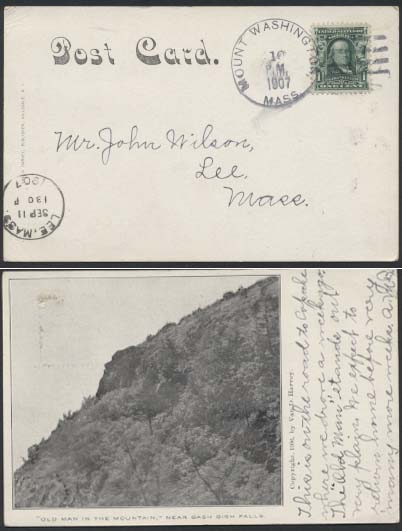 Post Card.
MOUNT WASHINGTON
10
P.M.
1907
MASS.
Mr. John Wilson,
Lee,
Mass.
LEE, MASS.
SEP 11
130 P
1907
Copyright, 1906, by Van D.
This is on the road to Copake
where we drove a week ago.
The "Old Man" stands out
very plain. We expect to
return home before very
many more weeks.
"OLD MAN IN THE MOUNTAIN," NEAR BASH BISH FALLS.